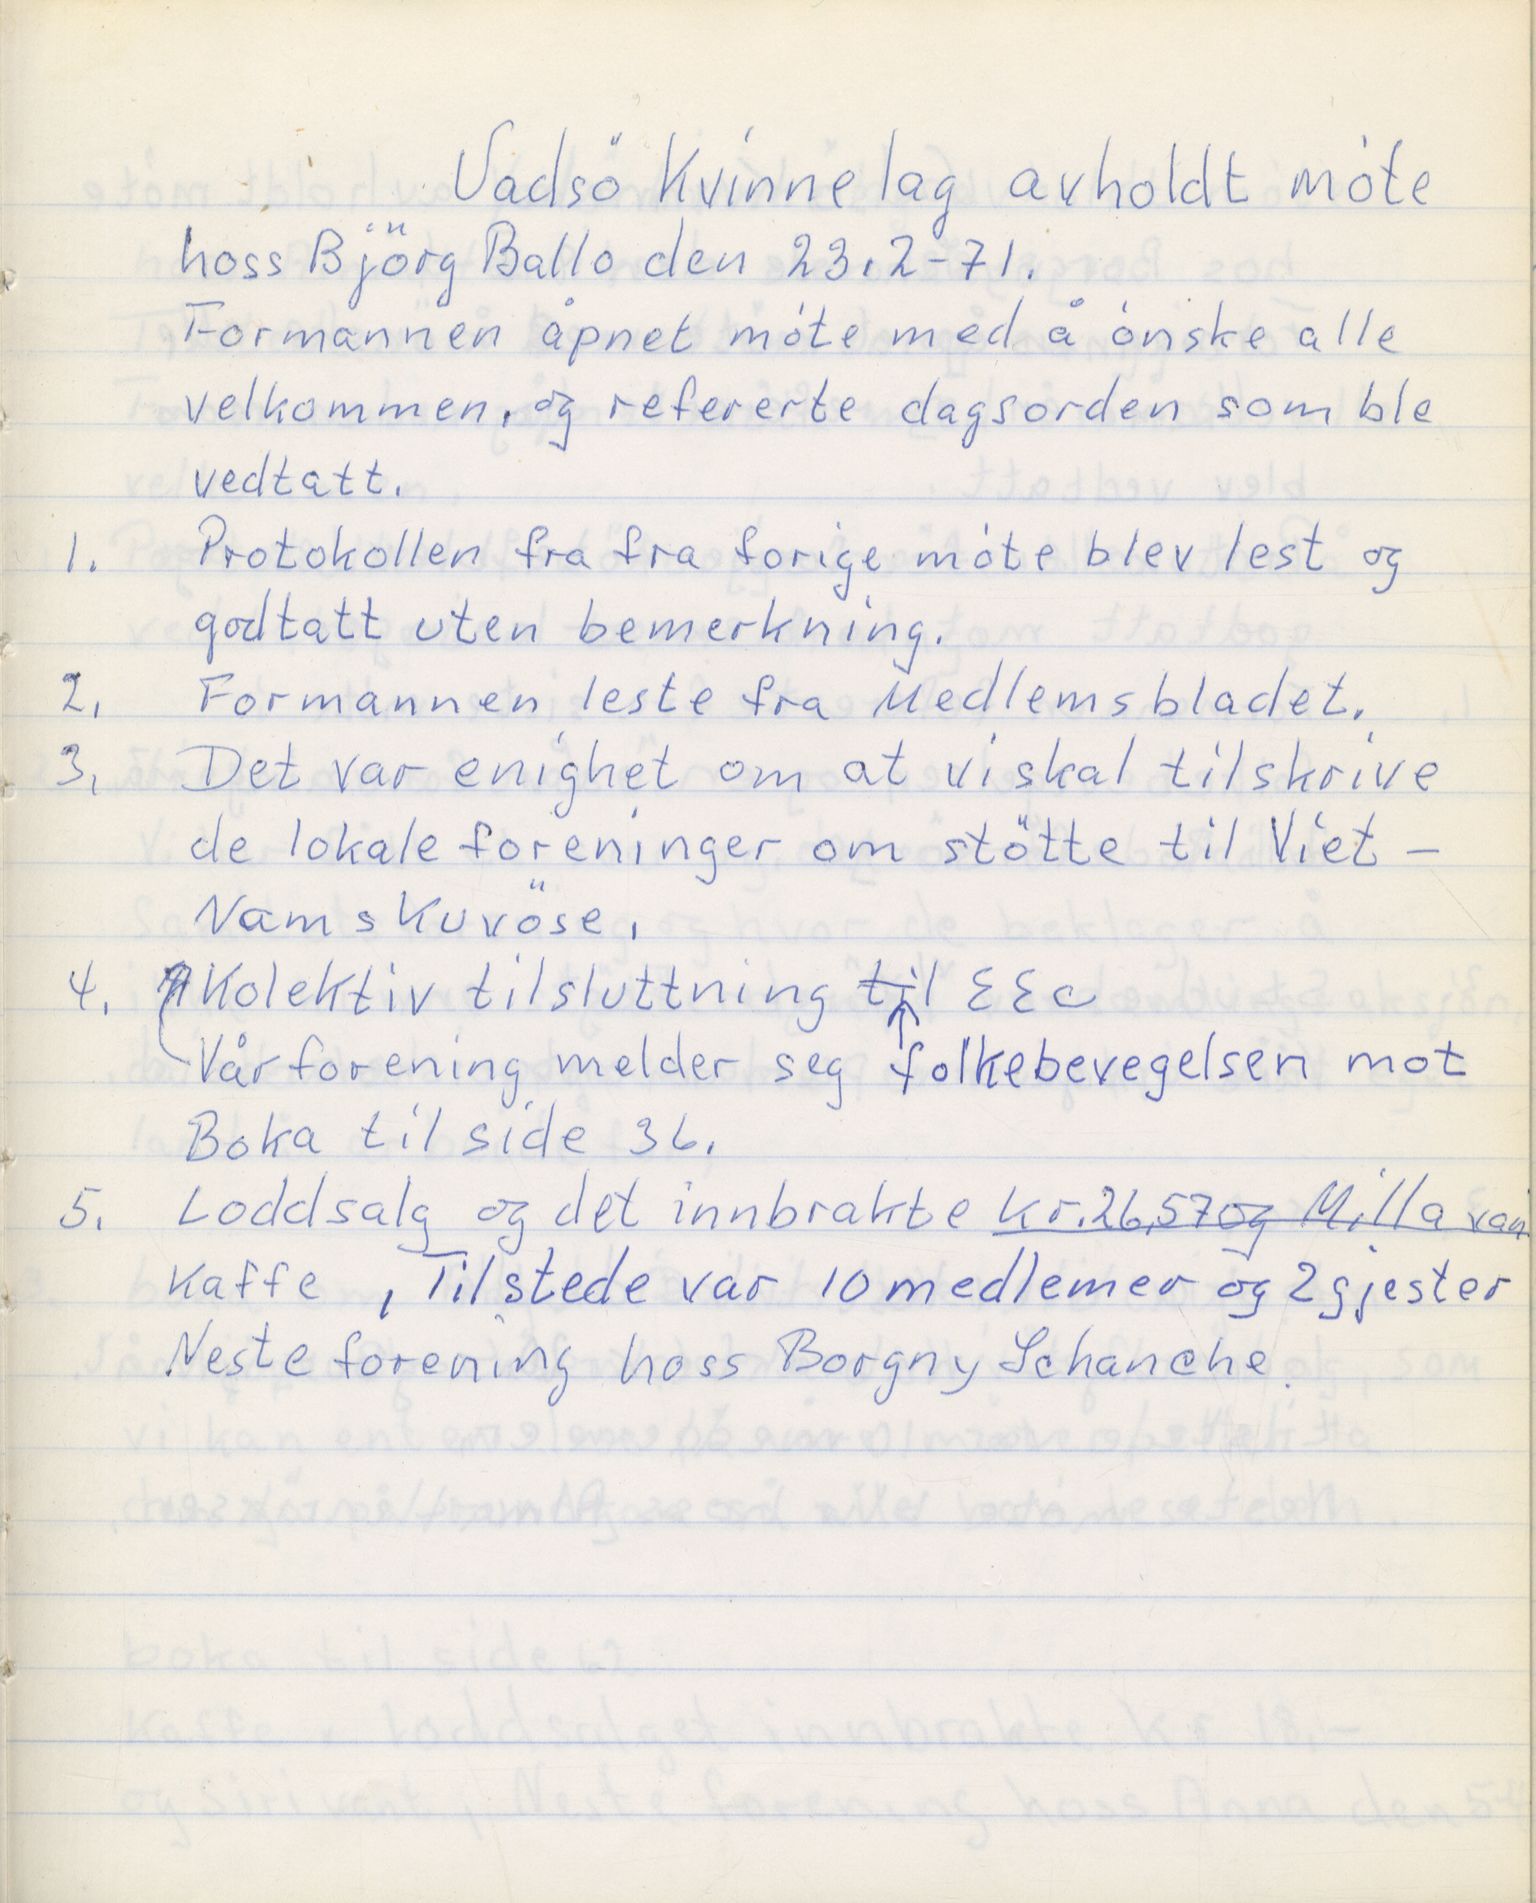 Vadsö Kvinnelag avholdt móte
hoss Björg Ballo den 23.2-71.
Formannen åpnet móte med å ónske alle
velkommen, og refererte dagsorden som ble
vedtatt.
1. Protokollen fra fra forige móte blev lest og
godtatt uten bemerkning.
2. Formannen leste fra Medlemsbladet.
3. Det var enighet om at vi skal tilskrive
de lokale foreninger om stötte til Viet-
Nams Kuvöse.
4. Kolektiv tilsluttning til EEC
Vår forening melder seg folkebevegelsen mot
Boka til side 36.
5. Loddsalg og det innbrakte kr. 26,57 og Milla van
Kaffe, Tilstede var 10 medlemer og 2 gjester
Neste forening hoss Borgny Schanche.